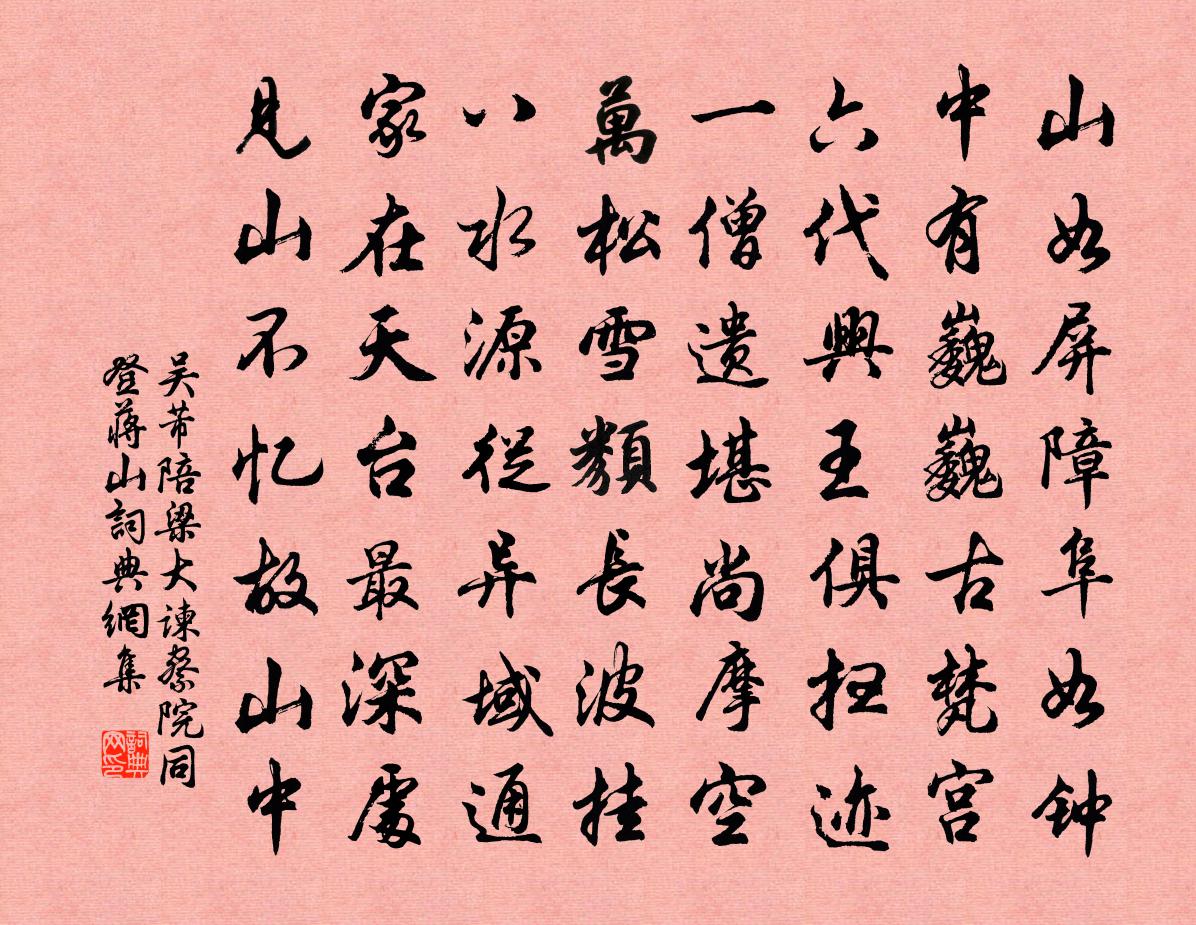 山如屏障阜如钟
中有巍巍古梵宫
六代興王俱扫迹
一僧遗堪尚摩空
萬松雪類長波挂
八水源從异域通
家在天台最深處
見山不忆故山中
吴芾陪梁大諫察院同
登蒋山詞典網集
詞典网印